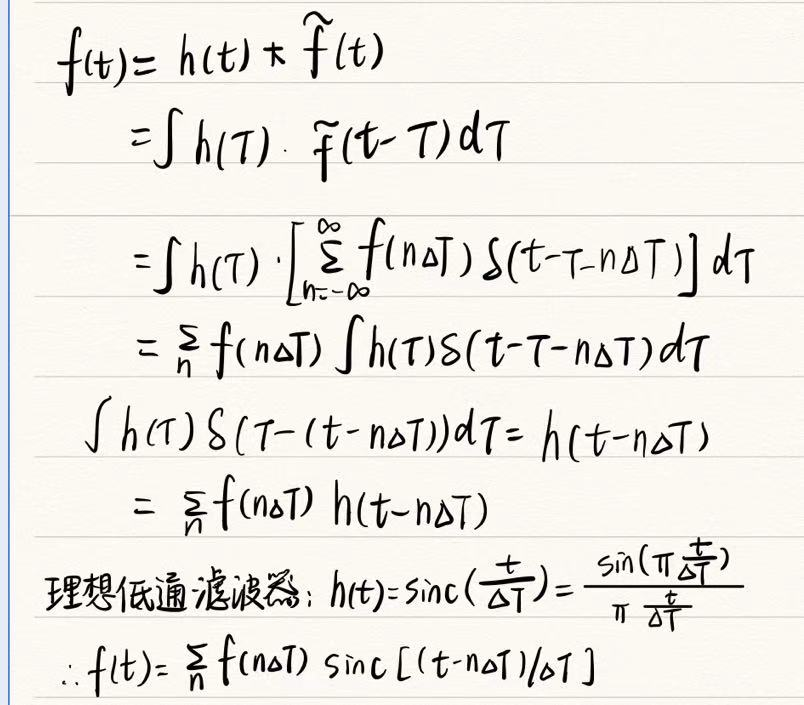 f(t)= h(t) * f̃(t)
=∫ h(τ) · f̃(t-τ)dτ
=∫ h(τ) · [∑_{n=-∞}^{∞} f(nΔT) δ(t-τ-nΔT)] dτ
= ∑_n f(nΔT) ∫h(τ)δ(t-τ-nΔT)dτ
∫ h(τ) δ(τ-(t-nΔT))dτ= h(t-nΔT)
= ∑_n f(nΔT) h(t-nΔT)
理想低通滤波器: h(t)=sinc(t/ΔT)= sin(π t/ΔT) / (π t/ΔT)
∴ f(t)= ∑_n f(nΔT) sinc[(t-nΔT)/ΔT]